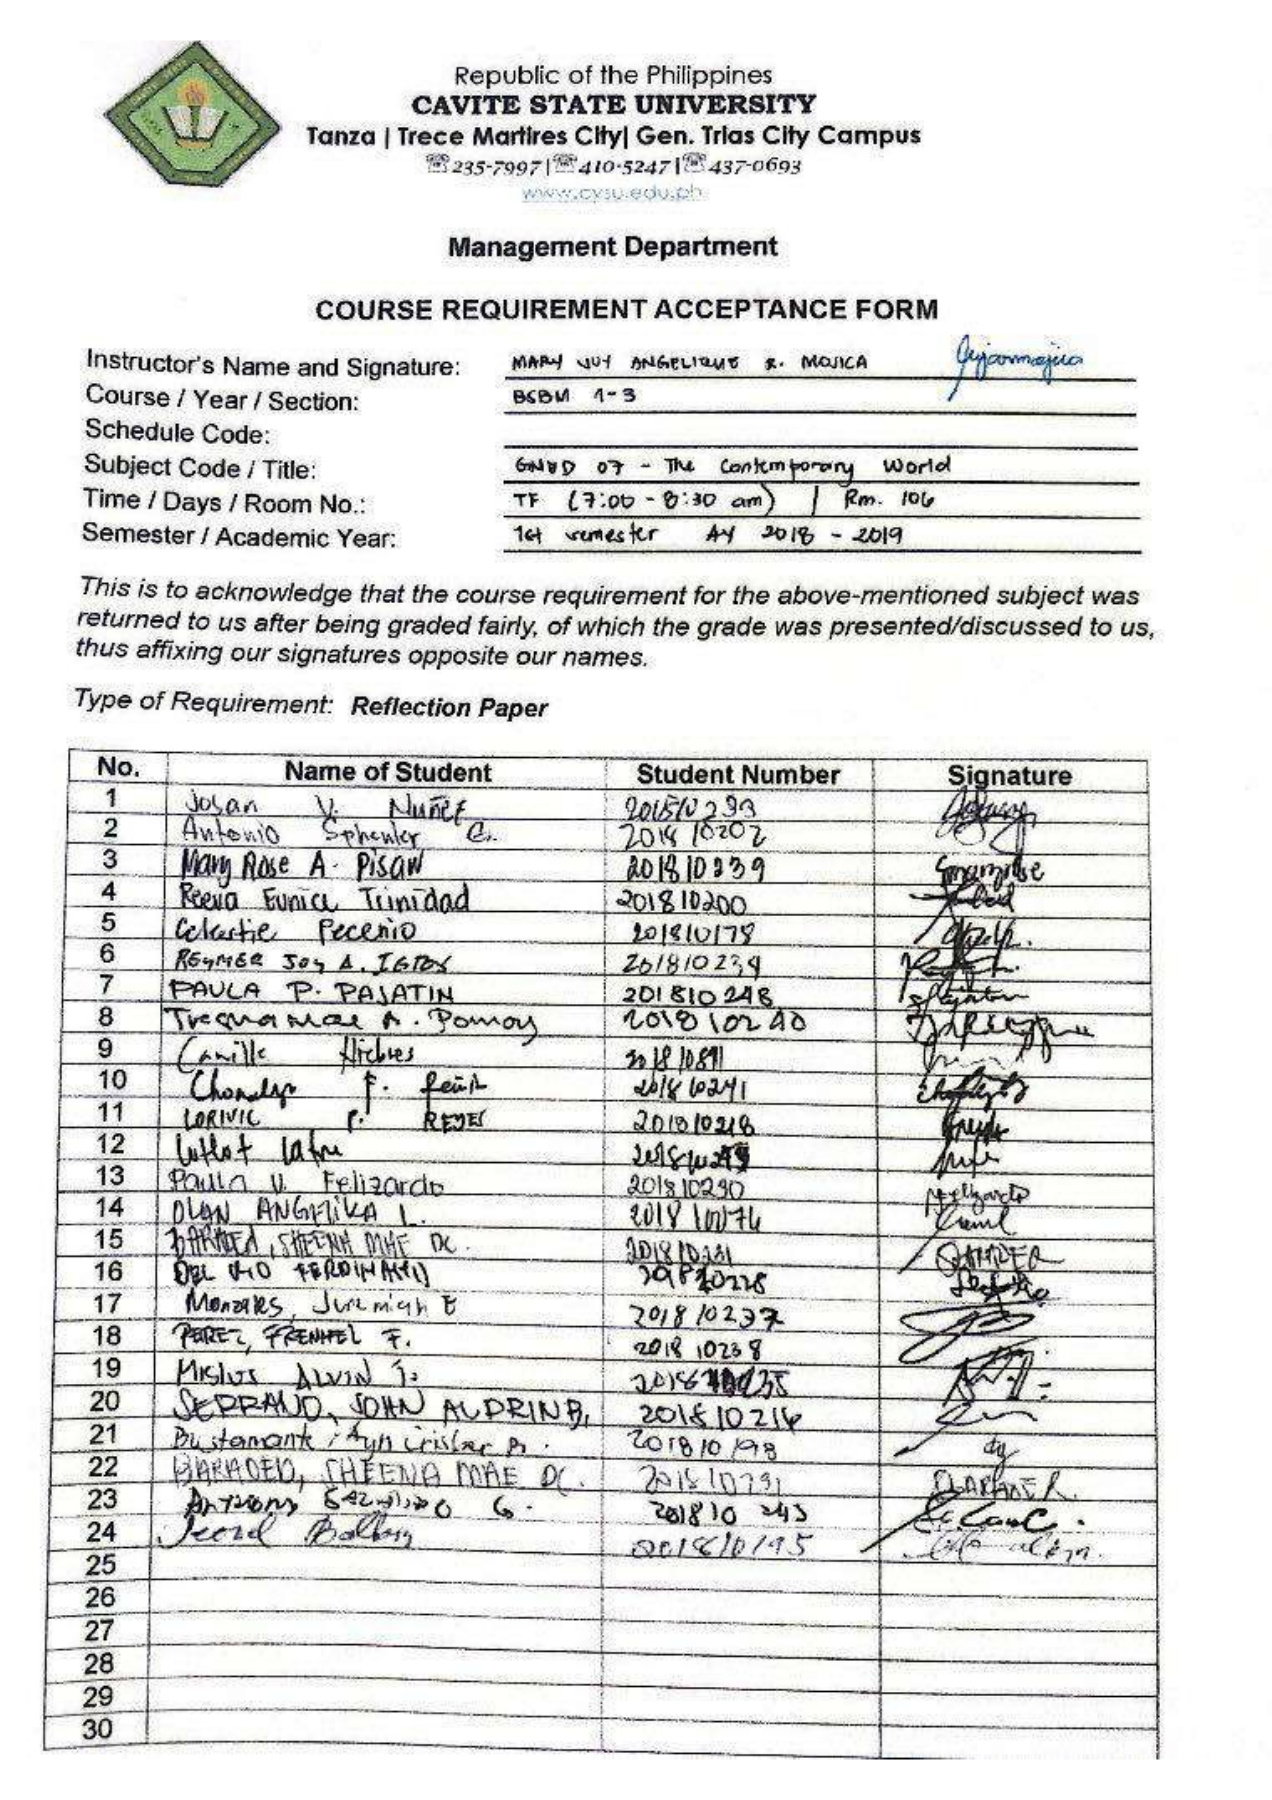 Republic of the Philippines
CAVITE STATE UNIVERSITY
Tanza | Trece Martires City| Gen. Trias City Campus
☏235-7997|☏410-5247|☏437-0693
www.cvsu.edu.ph
Management Department
COURSE REQUIREMENT ACCEPTANCE FORM
Instructor's Name and Signature: MARY JOY ANGELIQUE R. MOJICA
Course / Year / Section: BSBM 1-3
Schedule Code:
Subject Code / Title: GNED 07 - The Contemporary World
Time / Days / Room No.: TF (7:00 - 8:30 am) | Rm. 106
Semester / Academic Year: 1st semester AY 2018 - 2019
This is to acknowledge that the course requirement for the above-mentioned subject was
returned to us after being graded fairly, of which the grade was presented/discussed to us,
thus affixing our signatures opposite our names.
Type of Requirement: Reflection Paper
No. Name of Student Student Number Signature
1 Josan V. Nuñez
2 Antonio 201810202
3 Mary Rose A. 201810239
4 Reeva Eunice Trinidad 201810200
5 Celestie Pecenio 201810178
6 Joy A. 201810234
7 PAULA P. PAJATIN 201810248
8 Mae A. Pomoy 201810240
9 Camille
10 F. 201810241
11 LORIVIC P. REYES 201810218
12
13 Paula V. Felizardo 201810230
14 ANGELIKA L.
15 BARADED, SHEENA MAE DC. 201810231
16 DEL FERDINAND
17 Jeremiah E 201810237
18 PEREZ, FRENHEL F. 201810238
19 ALVIN J.
20 SERRANO, JOHN AUDRIN B. 201810214
21 Bustamante, 201810198
22 BARADED, SHEENA MAE DC.
23 G. 201810 243
24 201810195
25
26
27
28
29
30